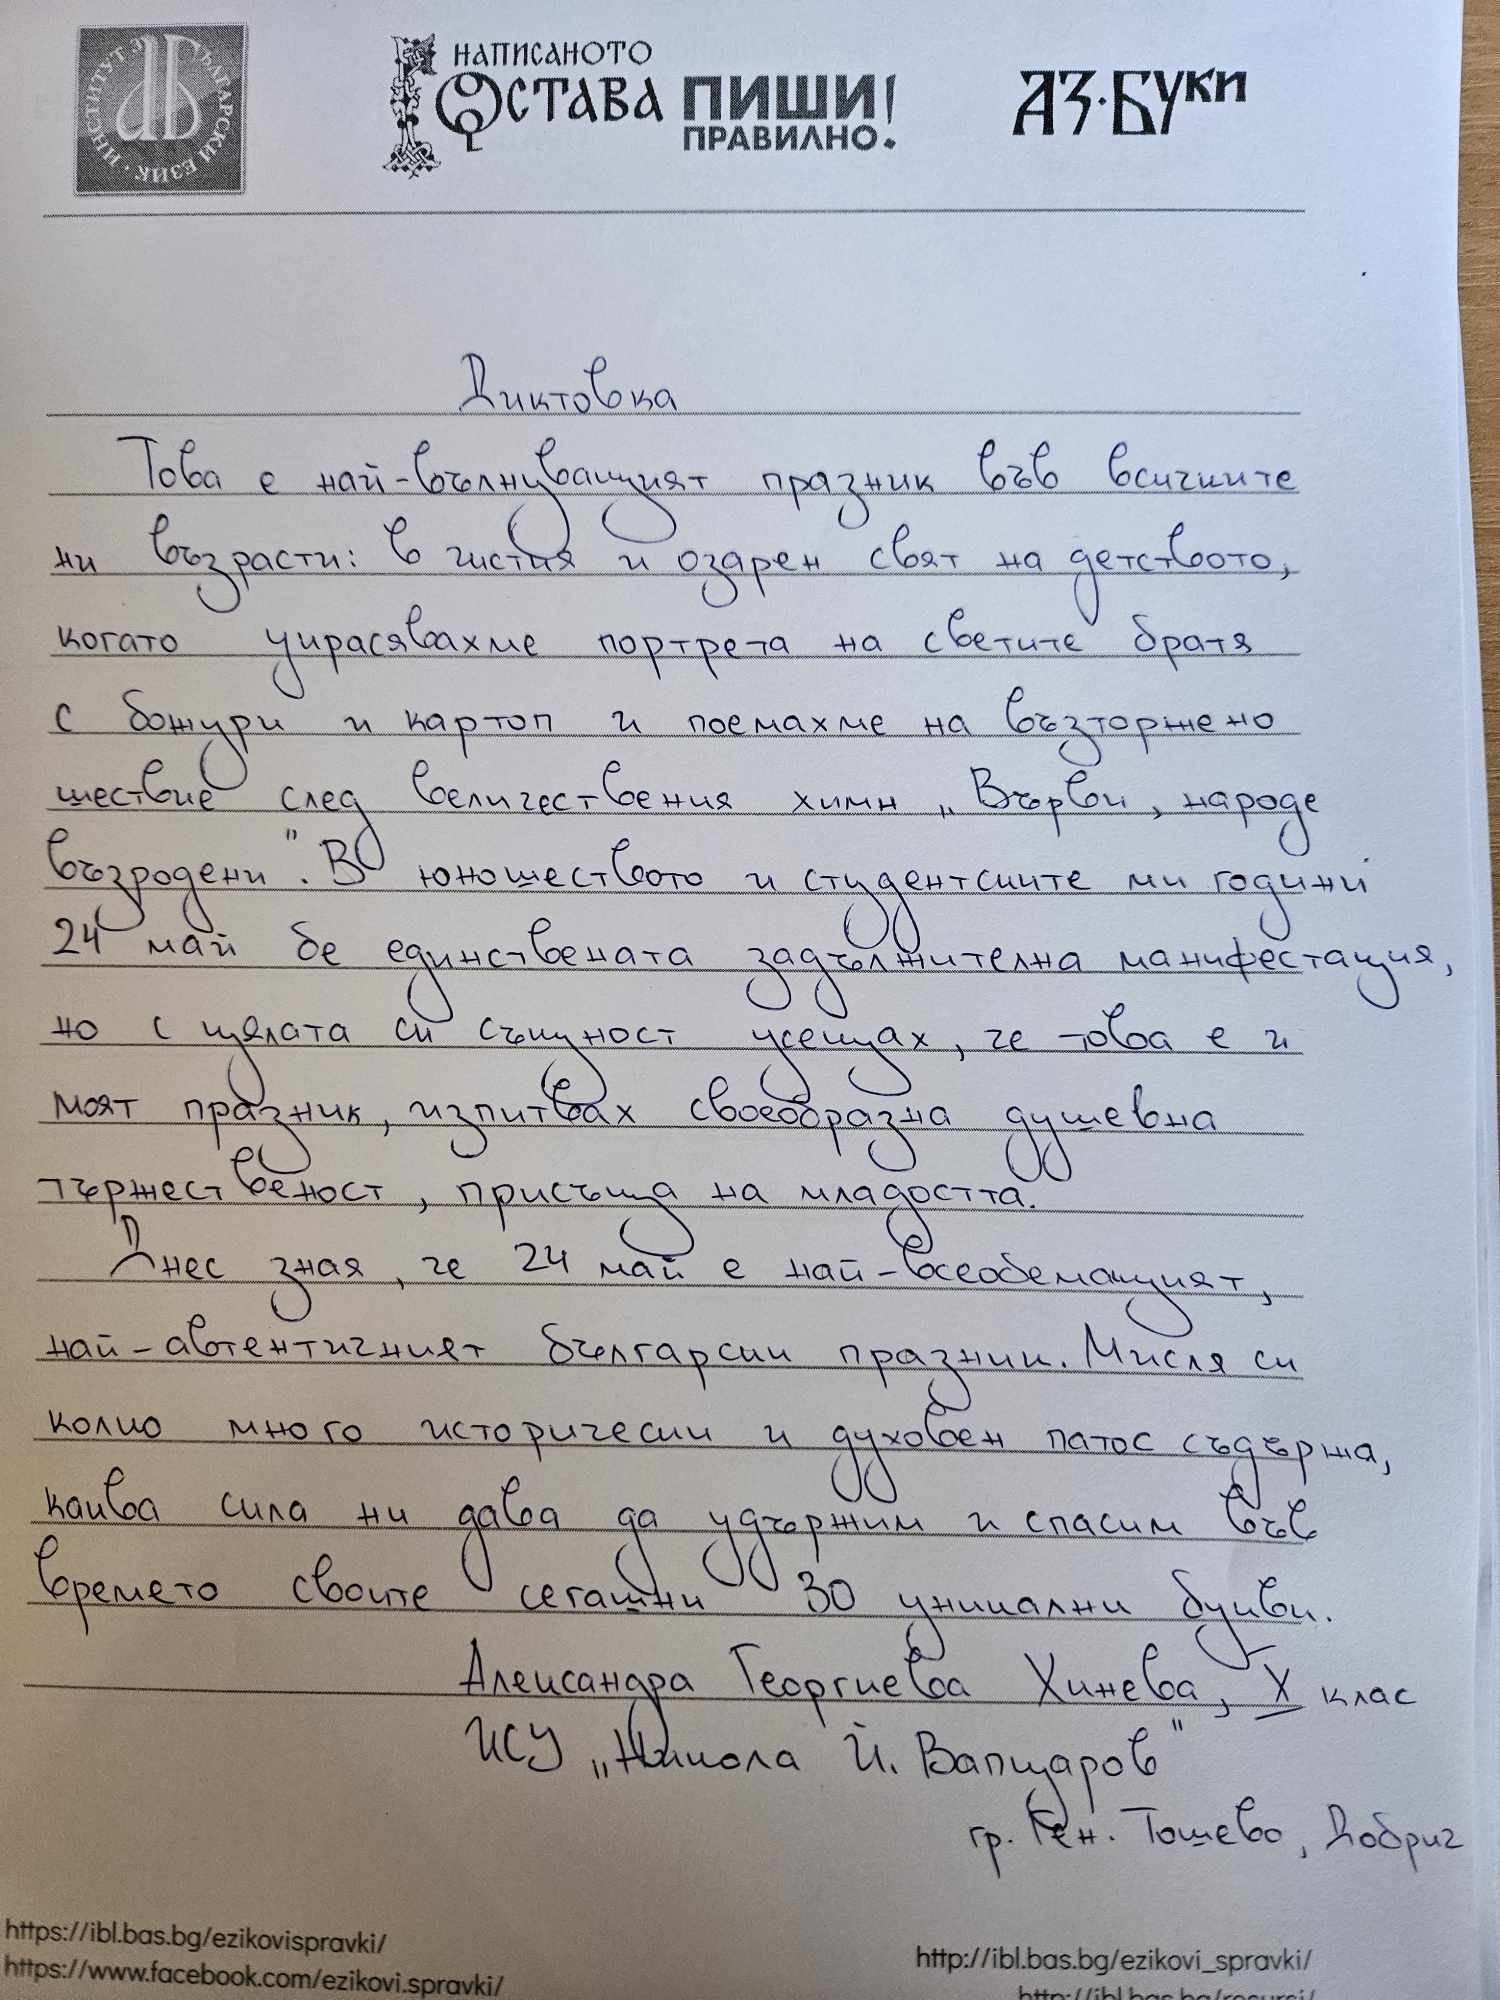 ИНСТИТУТ ЗА БЪЛГАРСКИ ЕЗИК
НАПИСАНОТО
ОСТАВА ПИШИ
ПРАВИЛНО!
АЗ·БУКИ
Диктовка
Това е най-вълнуващият празник във всичките
ни възрасти: в чистия и озарен свят на детството,
когато украсявахме портрета на светите братя
с божури и картоп и поемахме на възторжено
шествие след величествения химн „Върви, народе
възродени". В юношеството и студентските ми години
24 май бе единствената задължителна манифестация,
но с цялата си същност усещах, че това е и
моят празник, изпитвах своеобразна душевна
тържественост, присъща на младостта.
Днес зная, че 24 май е най-всеобемащият,
най-автентичният български празник. Мисля си
колко много исторически и духовен патос съдържа,
каква сила ни дава да удържим и спасим във
времето своите сегашни 30 уникални букви.
Александра Георгиева Хинева, X клас
ИСУ „Никола Й. Вапцаров"
гр. Ген. Тошево, Добрич
https://ibl.bas.bg/ezikovispravki/
https://www.facebook.com/ezikovi.spravki/
http://ibl.bas.bg/ezikovi_spravki/
http://ibl.bas.bg/resursi/